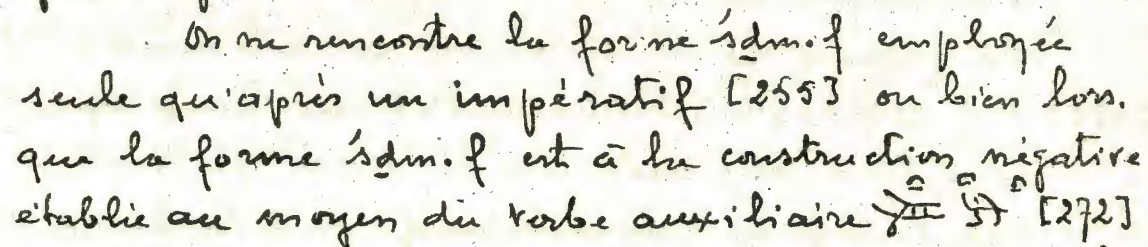 On ne rencontre la forme śḏm.f employée
seule qu'après un impératif [255] ou bien lors-
que la forme śḏm.f est à la construction négative
établie au moyen du verbe auxiliaire [272]